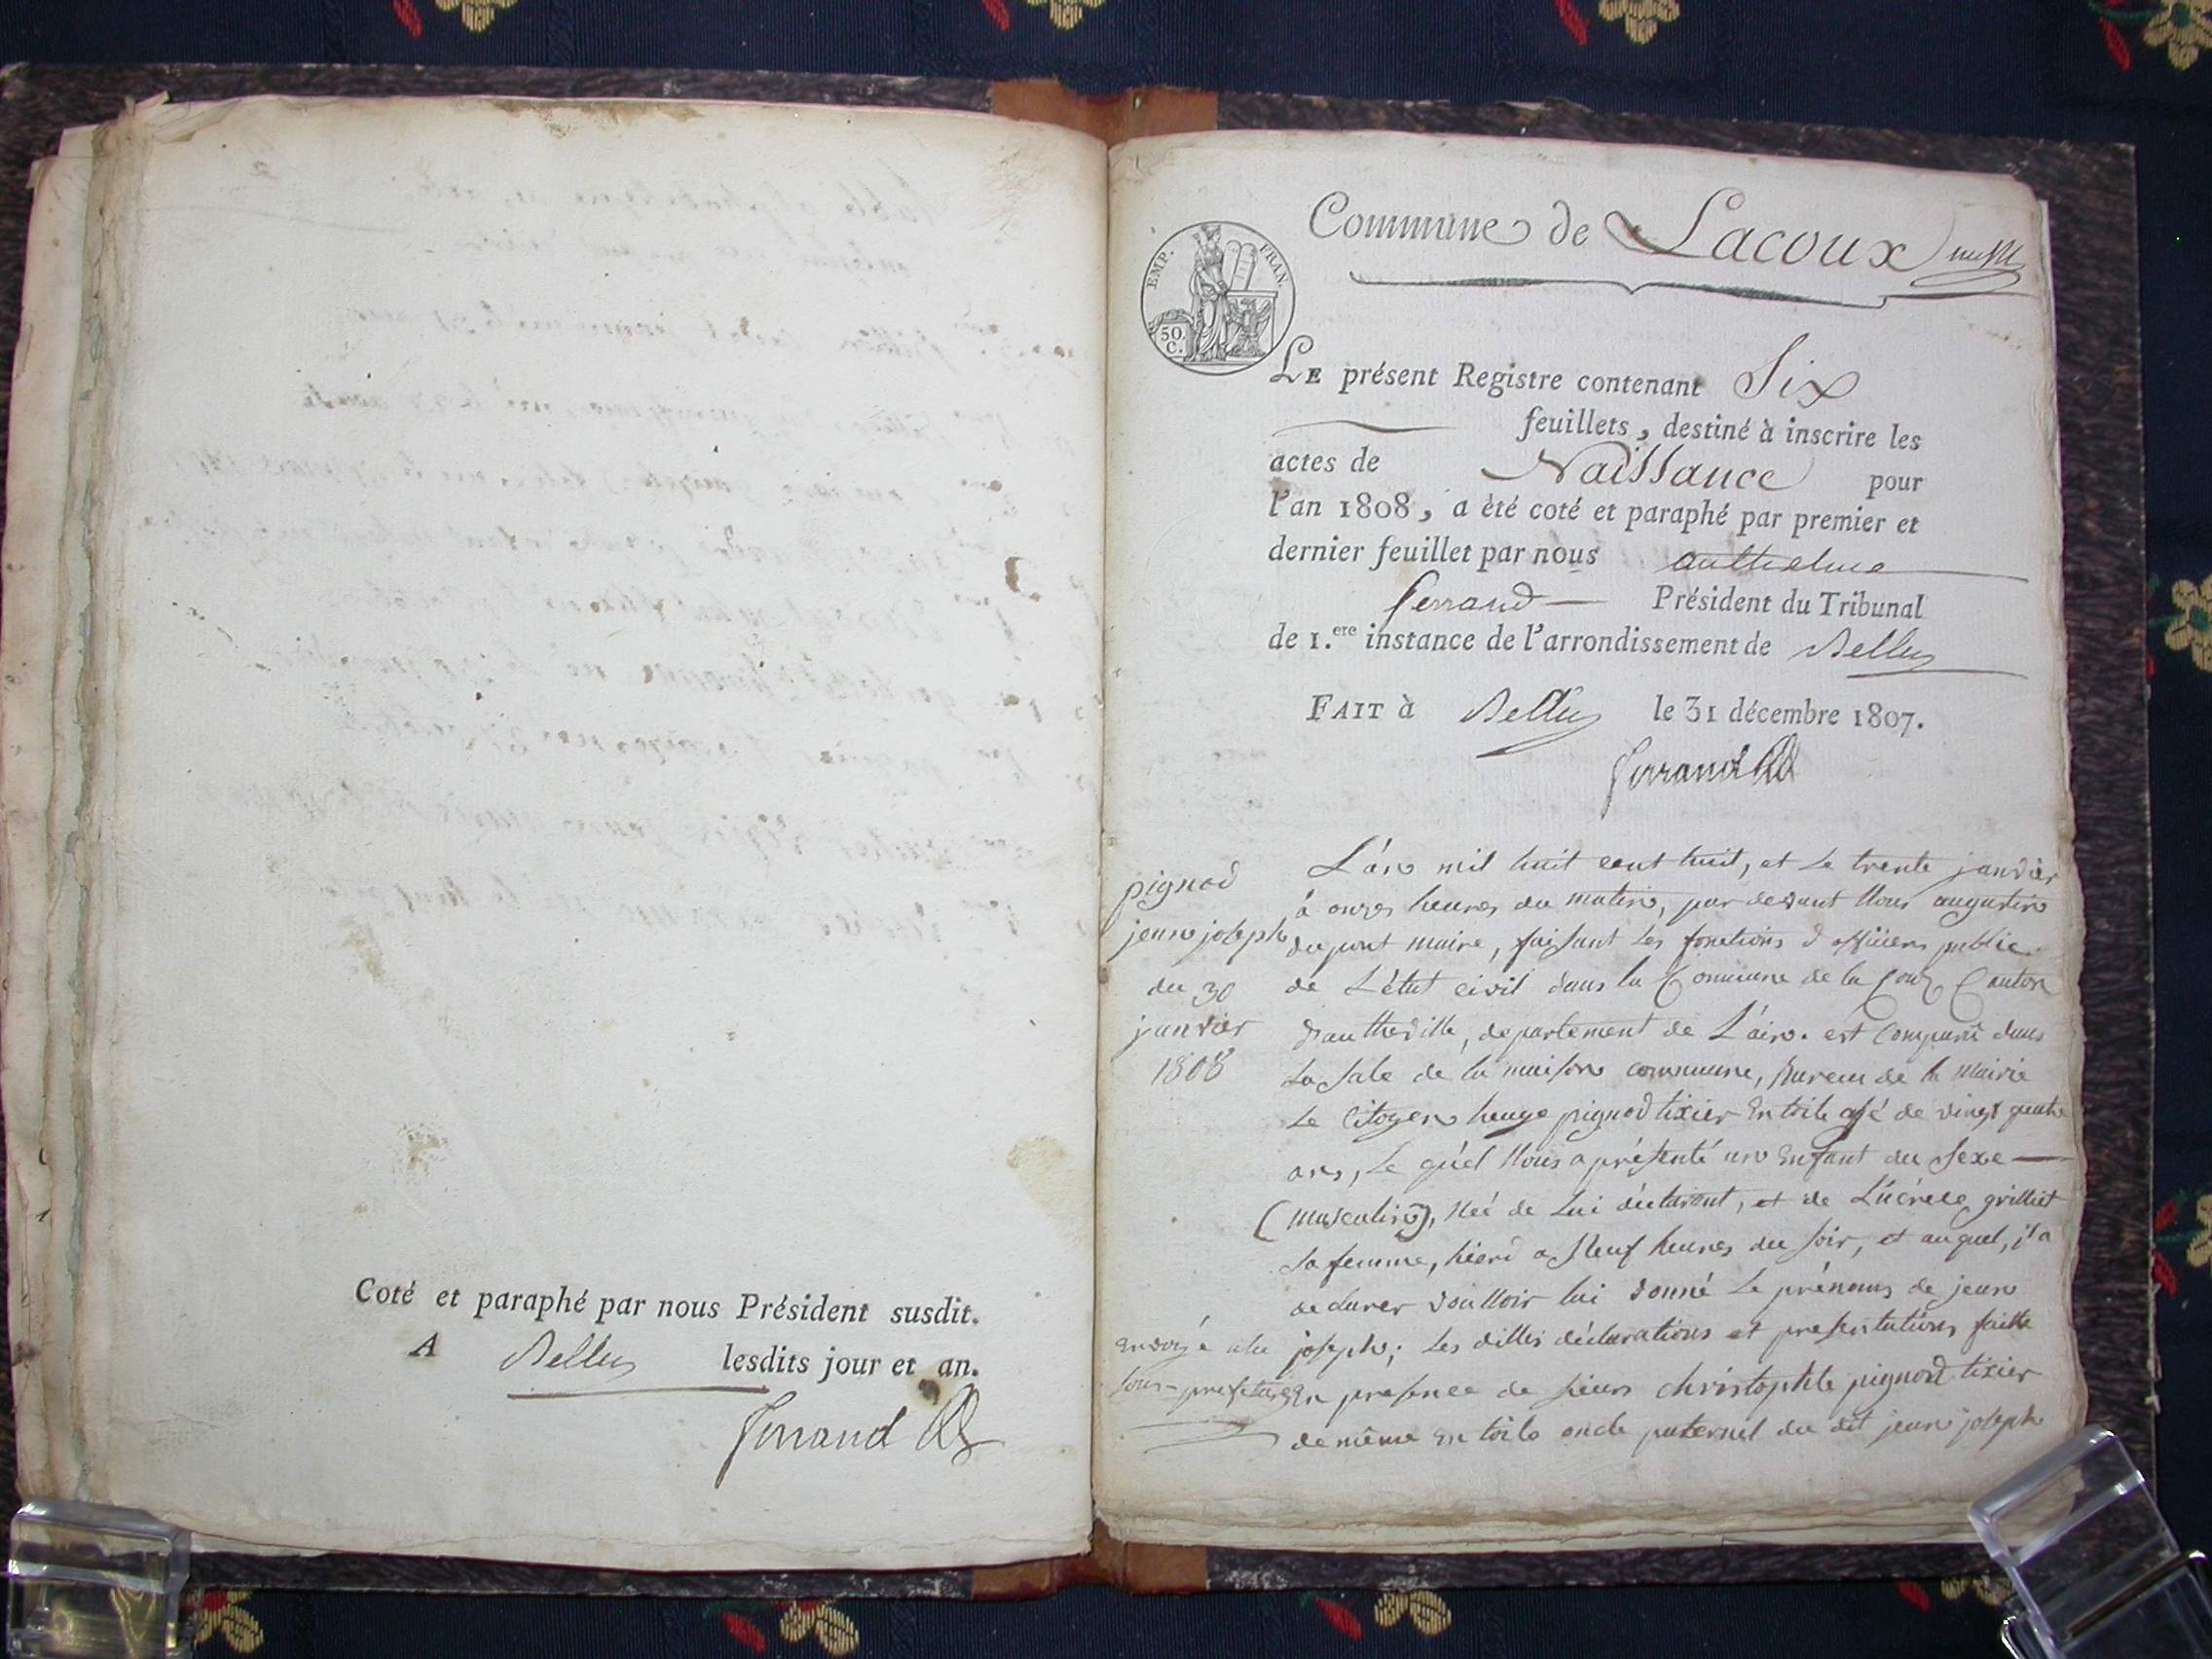 Coté et paraphé par nous Président susdit.
A Belley lesdits jour et an.
Ferrand
Commune de Lacoux
EMP. FRAN.
50. C.
LE présent Registre contenant Six
feuillets, destiné à inscrire les
actes de Naissance pour
l'an 1808, a èté coté et paraphé par premier et
dernier feuillet par nous anthelme
ferrand Président du Tribunal
de 1.ere instance de l'arrondissement de Belley
FAIT à Belley le 31 décembre 1807.
Ferrand
pignod
jean joseph
du 30
janvier
1808
L'án mil huit cent huit, et Le trente janvier
à onzes heures du matin, par devant Nous augustin
dupont maire, faisant Les fonctions d'officiers public
de L'état civil dans la Commune de la Coux Canton
d'autheville, departement de L'ain. est Comparu dans
La Sale de la maison commune, Bureau de la Mairie
Le Citoyen huuge pignod tixier En toile agé de vingt quatre
ans, Le quél Nous a présenté un Enfant du Sexe
(masculin), Née de Lui déclarant, et de Lucrèce grilliet
Sa femme, hierd a Neuf heures du Soir, et auquel, j'l a
declarer voulloir lui donné Le prénoms de jean
joseph; Les dittes déclarations et presentations faitte
En presence de Sieurs christophle pignod tixier
de même En toile oncle paternel du dit jean joseph
Envoyé a la
Sous-prefeture